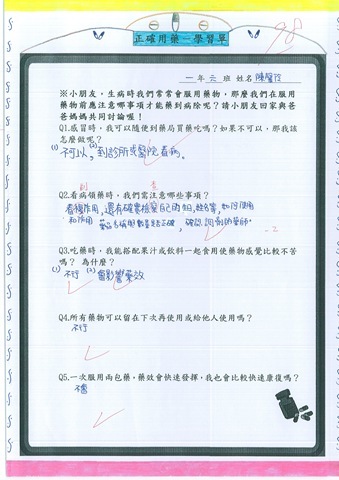 正確用藥－學習單
98
一年六班 姓名
※小朋友，生病時我們常常會服用藥物，那麼我們在服用
藥物前應注意哪事項才能藥到病除呢？請小朋友回家與爸
爸媽媽共同討論喔！
Q1.感冒時，我可以隨便到藥局買藥吃嗎？如果不可以，那我該
怎麼做呢？
(1)不可以 (2)到診所或醫院看病。
Q2.看病領藥時，我們需注意哪些事項？
副 查
看種作用，還有確實檢 自己的
和作用 藥品名稱 數量是否正確，確認 藥師。
-2
Q3.吃藥時，我能搭配果汁或飲料一起食用使藥物感覺比較不苦
嗎？ 為什麼？
(1)不行 (2)會影響藥效
Q4.所有藥物可以留在下次再使用或給他人使用嗎？
不行
Q5.一次服用兩包藥，藥效會快速發揮，我也會比較快速康復嗎？
不會